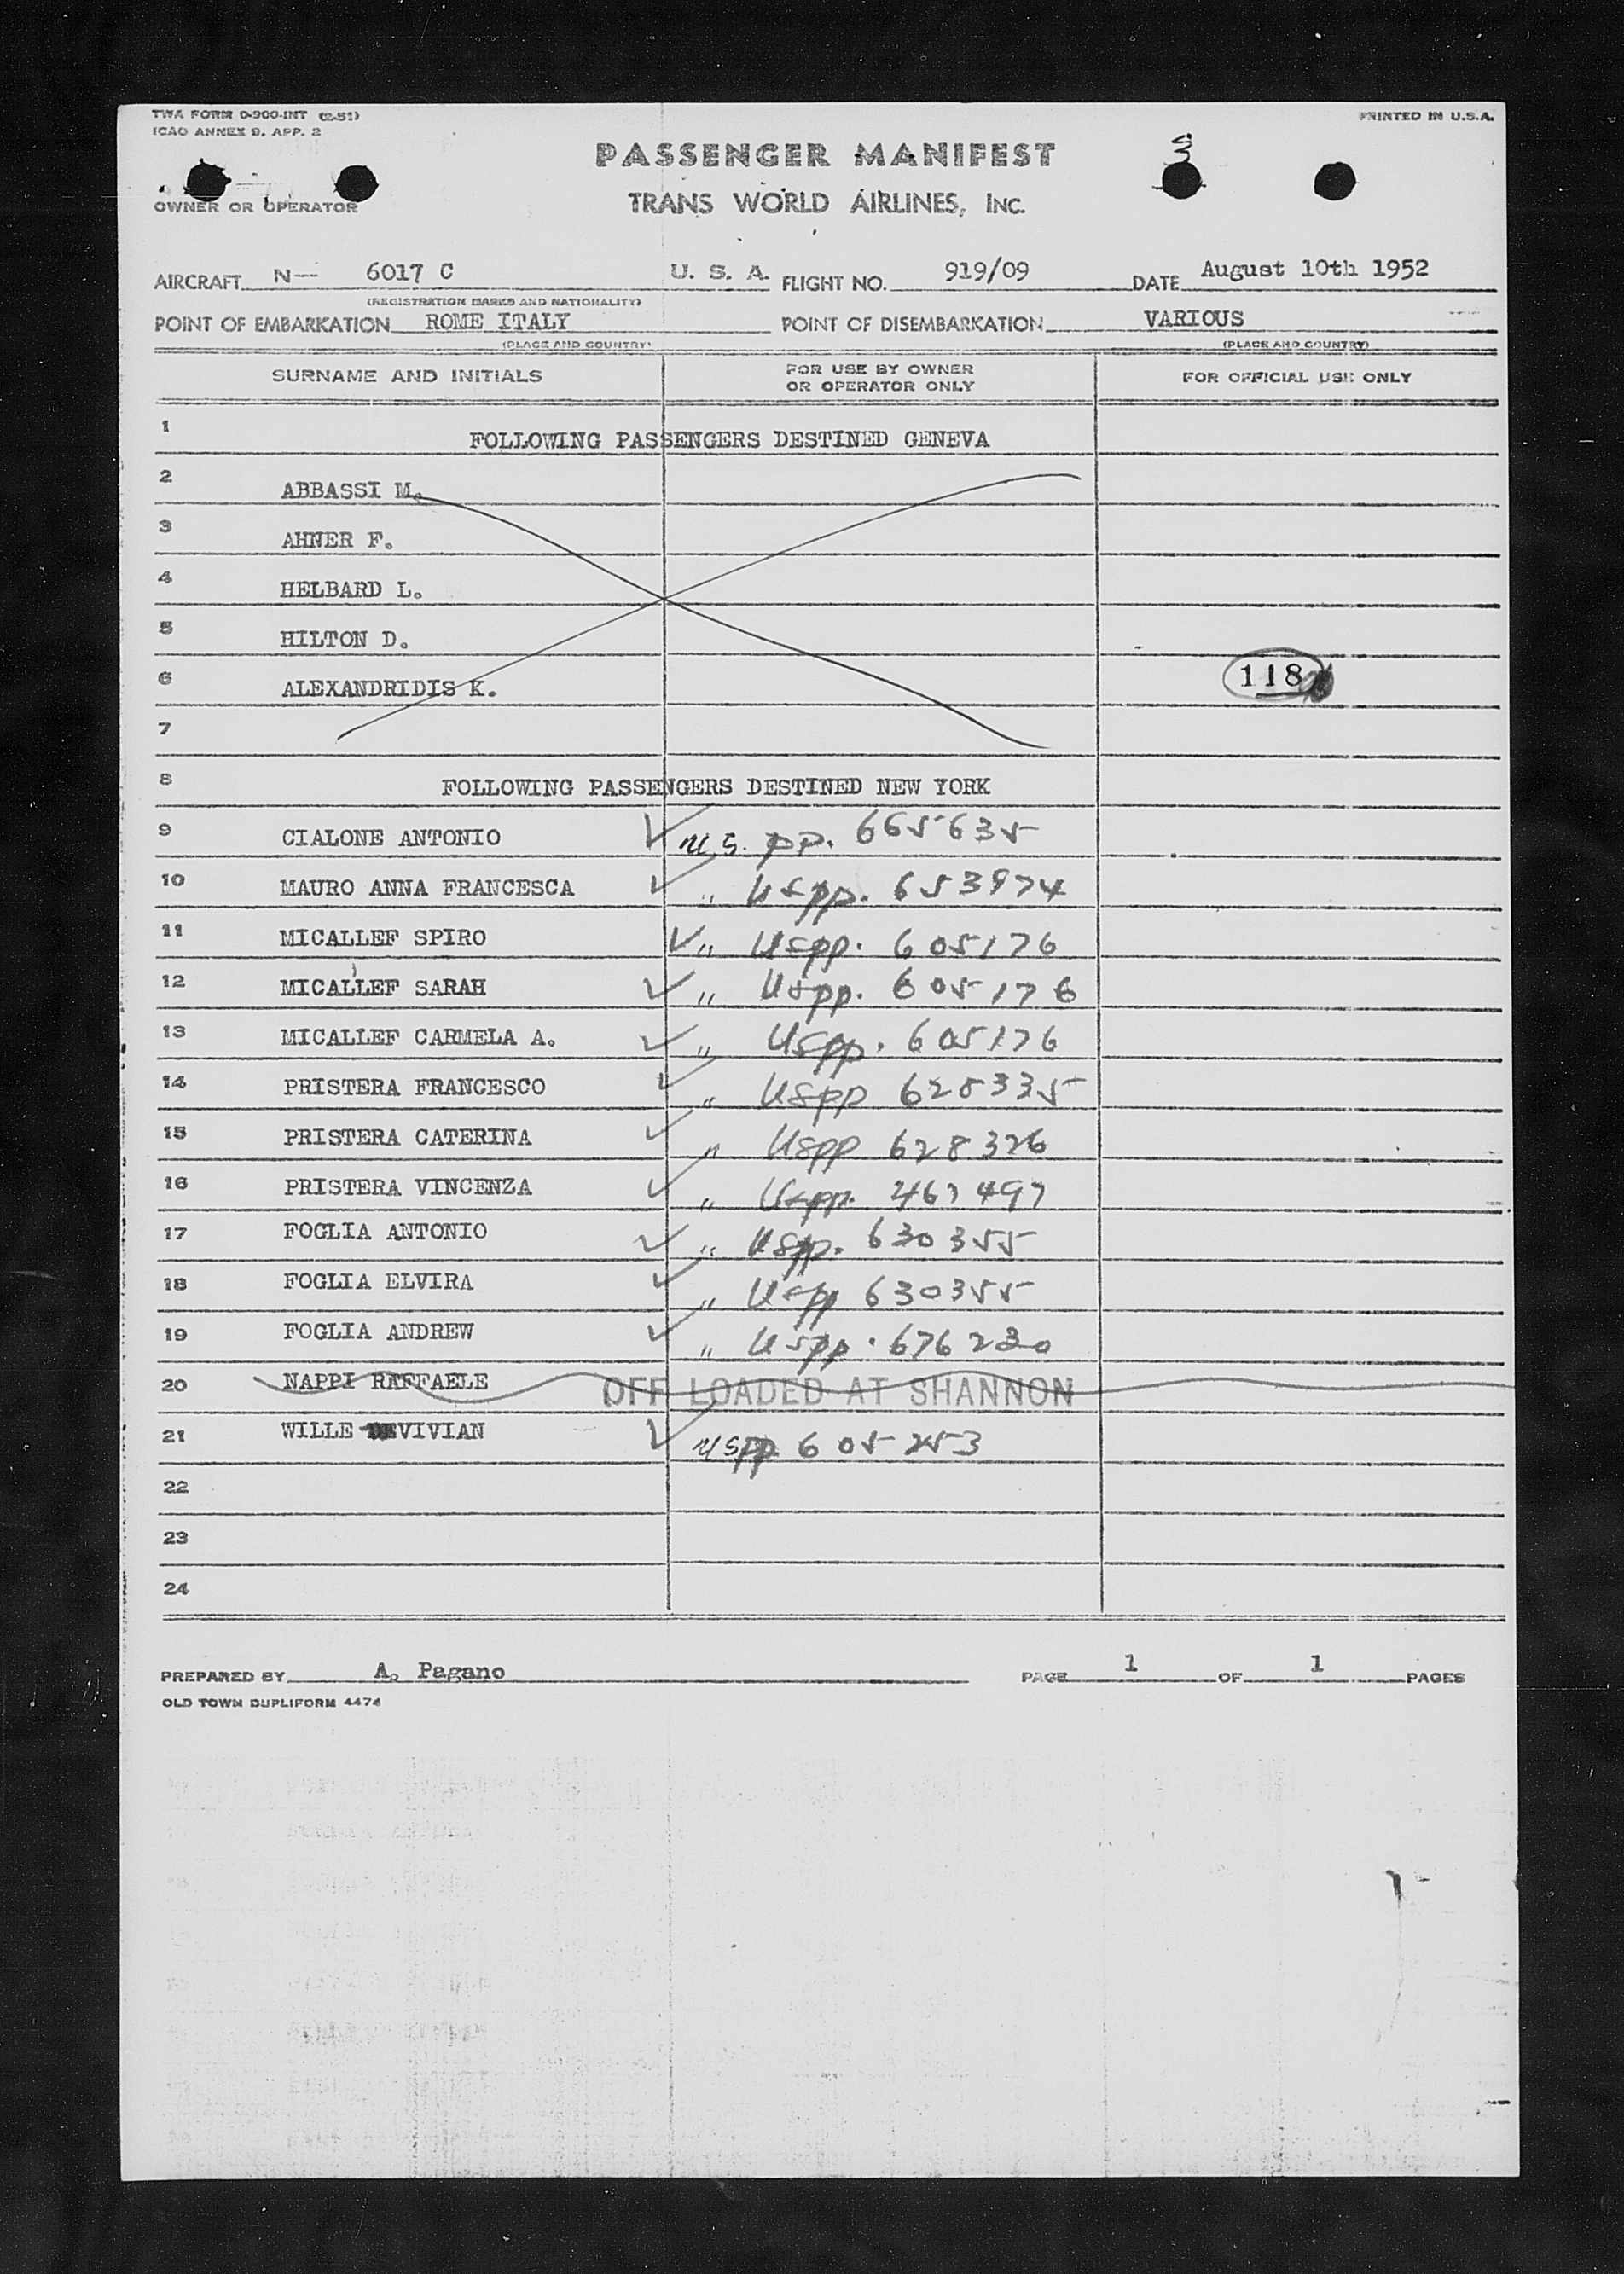 TWA FORM 0-900-INT (2-51)
PRINTED IN U.S.A.
ICAO ANNEX 9, APP. 2
3
PASSENGER MANIFEST
OWNER OR OPERATOR
TRANS WORLD AIRLINES, INC.
AIRCRAFT N— 6017 C U. S. A. FLIGHT NO. 919/09 DATE August 10th 1952
(REGISTRATION MARKS AND NATIONALITY)
POINT OF EMBARKATION ROME ITALY POINT OF DISEMBARKATION VARIOUS
(PLACE AND COUNTRY) (PLACE AND COUNTRY)
SURNAME AND INITIALS FOR USE BY OWNER OR OPERATOR ONLY FOR OFFICIAL USE ONLY
1 FOLLOWING PASSENGERS DESTINED GENEVA
2 ABBASSI M.
3 AHNER F.
4 HELBARD L.
5 HILTON D.
6 ALEXANDRIDIS K. 118
7
8 FOLLOWING PASSENGERS DESTINED NEW YORK
9 CIALONE ANTONIO ✓ U.S. pp. 665635
10 MAURO ANNA FRANCESCA ✓ " USpp. 653974
11 MICALLEF SPIRO ✓ " USpp. 605176
12 MICALLEF SARAH ✓ " USpp. 605176
13 MICALLEF CARMELA A. ✓ " USpp. 605176
14 PRISTERA FRANCESCO ✓ " USpp 628335
15 PRISTERA CATERINA ✓ " USpp 628326
16 PRISTERA VINCENZA ✓ " USpp. 467497
17 FOGLIA ANTONIO ✓ " USpp. 630355
18 FOGLIA ELVIRA ✓ " USpp 630355
19 FOGLIA ANDREW ✓ " USpp. 676230
20 NAPPI RAFFAELE OFF LOADED AT SHANNON
21 WILLE VIVIAN ✓ USpp 605253
22
23
24
PREPARED BY A. Pagano PAGE 1 OF 1 PAGES
OLD TOWN DUPLIFORM 4474